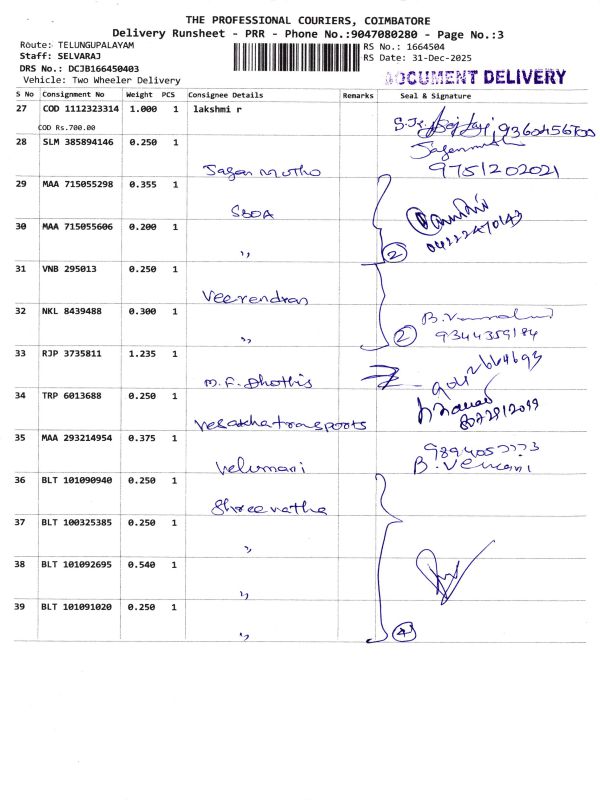 THE PROFESSIONAL COURIERS, COIMBATORE
Delivery Runsheet - PRR - Phone No.:9047080280 - Page No.:3
Route: TELUNGUPALAYAM
Staff: SELVARAJ
DRS No.: DCJB166450403
Vehicle: Two Wheeler Delivery
RS No.: 1664504
RS Date: 31-Dec-2025
DOCUMENT DELIVERY
S No Consignment No Weight PCS Consignee Details Remarks Seal & Signature
27 COD 1112323314 1.000 1 lakshmi r
COD Rs.700.00
28 SLM 385894146 0.250 1
Sagan Mutho 9751202021
29 MAA 715055298 0.355 1
SBOA
30 MAA 715055606 0.200 1
,, 2 04222470143
31 VNB 295013 0.250 1
Veerendran
32 NKL 8439488 0.300 1
,, 2 9344359184
33 RJP 3735811 1.235 1
M.F. Dhothis
34 TRP 6013688 0.250 1
Vesakhatransports
35 MAA 293214954 0.375 1
Velumani
36 BLT 101090940 0.250 1
Shreenatha
37 BLT 100325385 0.250 1
,,
38 BLT 101092695 0.540 1
,,
39 BLT 101091020 0.250 1
,, 4